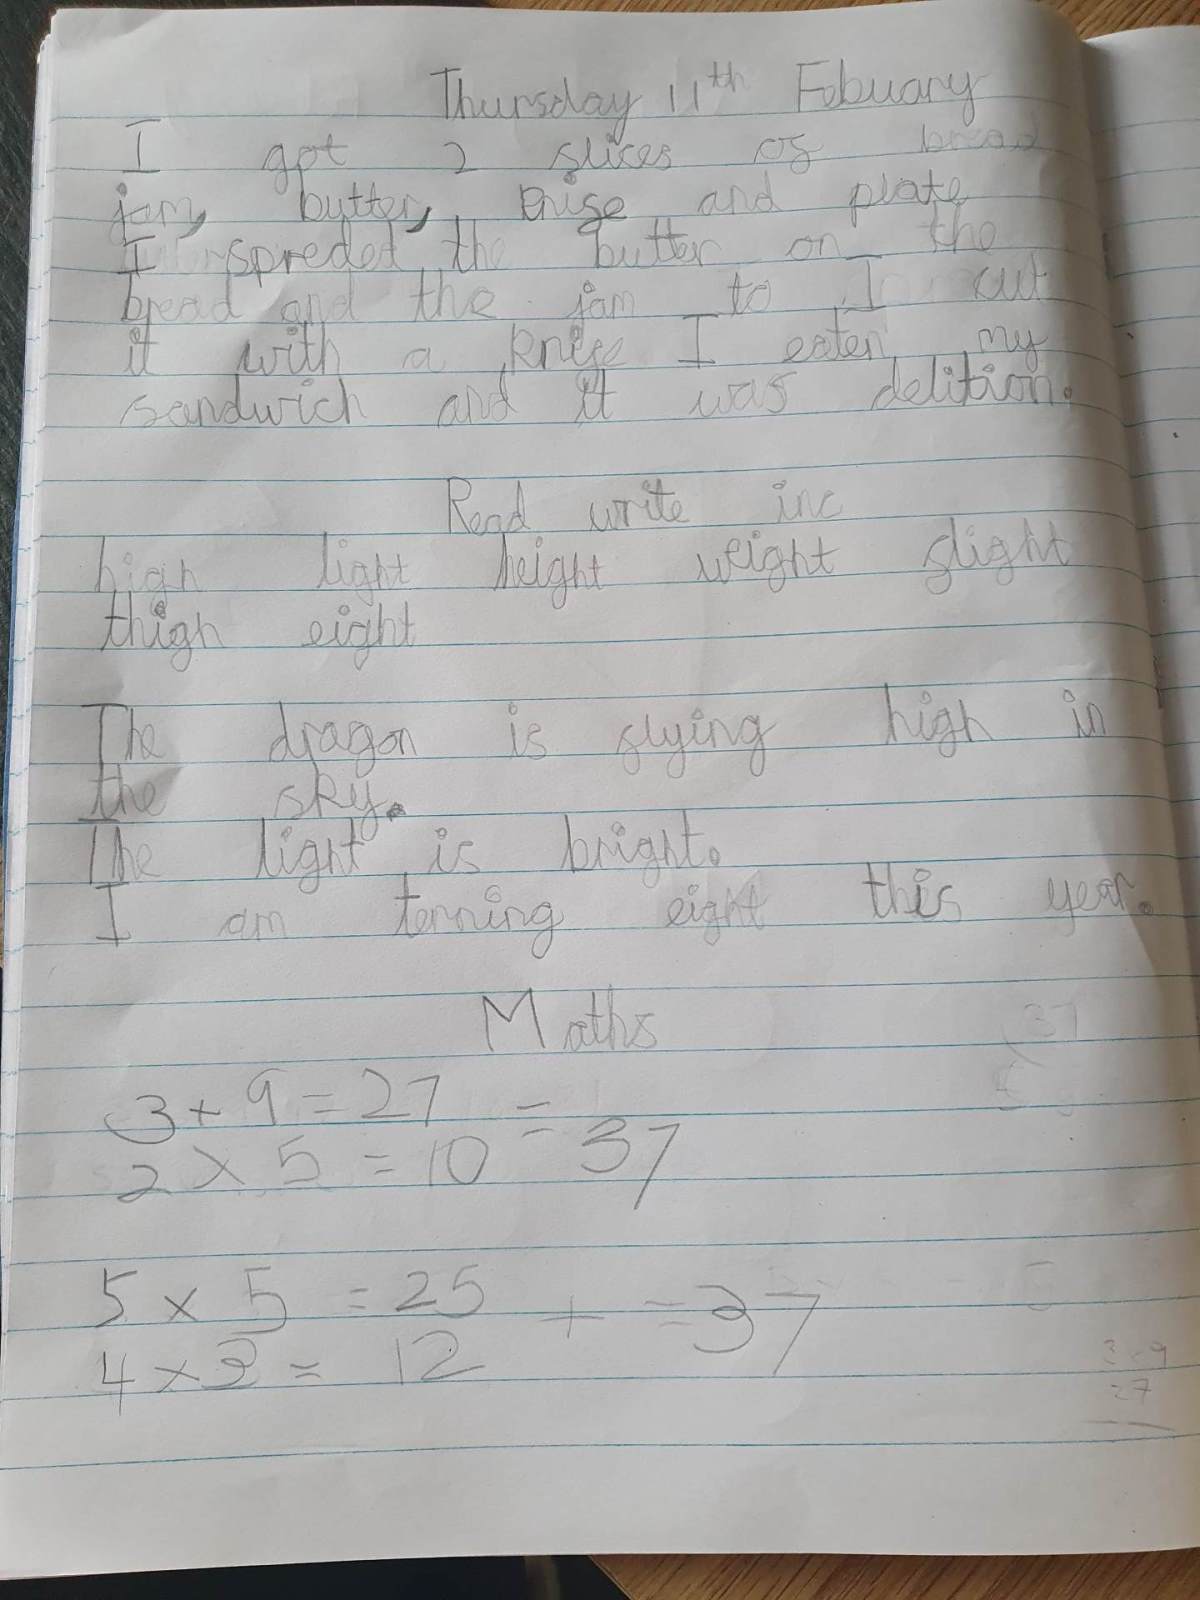 Thursday 11th Febuary
I got 2 slices of bread
jam, butter, knife and plate
I spreded the butter on the
bread and the jam to I cut
it with a knife I eaten my
sandwich and it was delition.
Read write inc
high light height weight slight
thigh eight
The dragon is flying high in
the sky.
The light is bright.
I am terning eight this year.
Maths
37
3 + 9 = 27 = 37
2 x 5 = 10
5 x 5 = 25 + = 37
4 x 3 = 12
3 9
27